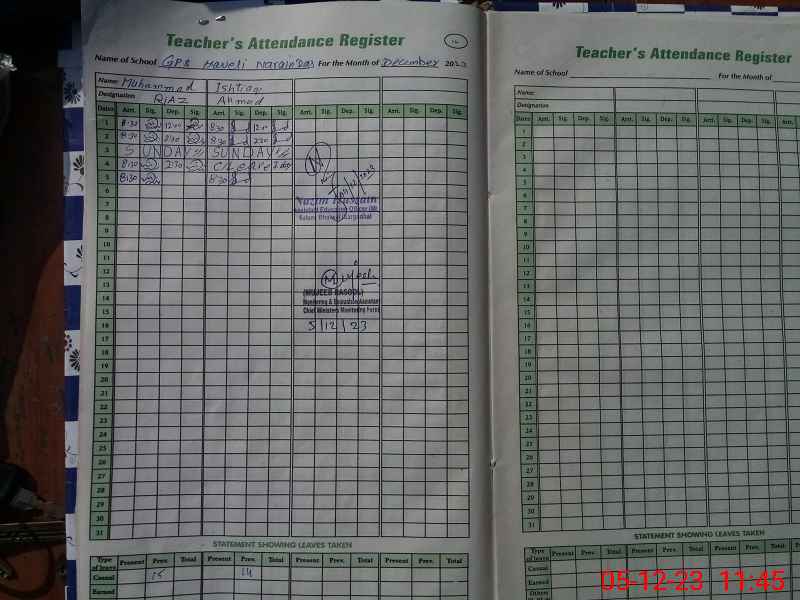 Teacher's Attendance Register
Name of School GPS Haveli Narain Das For the Month of December 2023
Name: Muhammad Riaz Ishtiaq Ahmad
Designation
Dates Arr. Sig. Dep. Sig. Arr. Sig. Dep. Sig. Arr. Sig. Dep. Sig. Arr. Sig. Dep. Sig.
1 8:30 12:00 8:30 12:00
2 8:30 2:30 8:30 2:30
3 SUNDAY SUNDAY
4 8:30 2:30
5 8:30 8:30
6
7
8
9
10
11
12
13
14
15
16
17
18
19
20
21
22
23
24
25
26
27
28
29
30
31
Nazim Hussain
Assistant Education Officer (M)
(MUJEEB RASOOL)
Monitoring & Evaluation Assistant
Chief Ministers Monitoring Force
5/12/23
STATEMENT SHOWING LEAVES TAKEN
Type of leave Present Prev. Total Present Prev. Total Present Prev. Total Present Prev. Total
Casual 15 14
Earned
Teacher's Attendance Register
Name of School For the Month of
Name:
Designation
Dates Arr. Sig. Dep. Sig. Arr. Sig. Dep. Sig. Arr. Sig. Dep. Sig. Arr.
1
2
3
4
5
6
7
8
9
10
11
12
13
14
15
16
17
18
19
20
21
22
23
24
25
26
27
28
29
30
31
STATEMENT SHOWING LEAVES TAKEN
Type of leave Present Prev. Total Present Prev. Total Present Prev. Total
Casual
Earned
Others
05-12-23 11:45